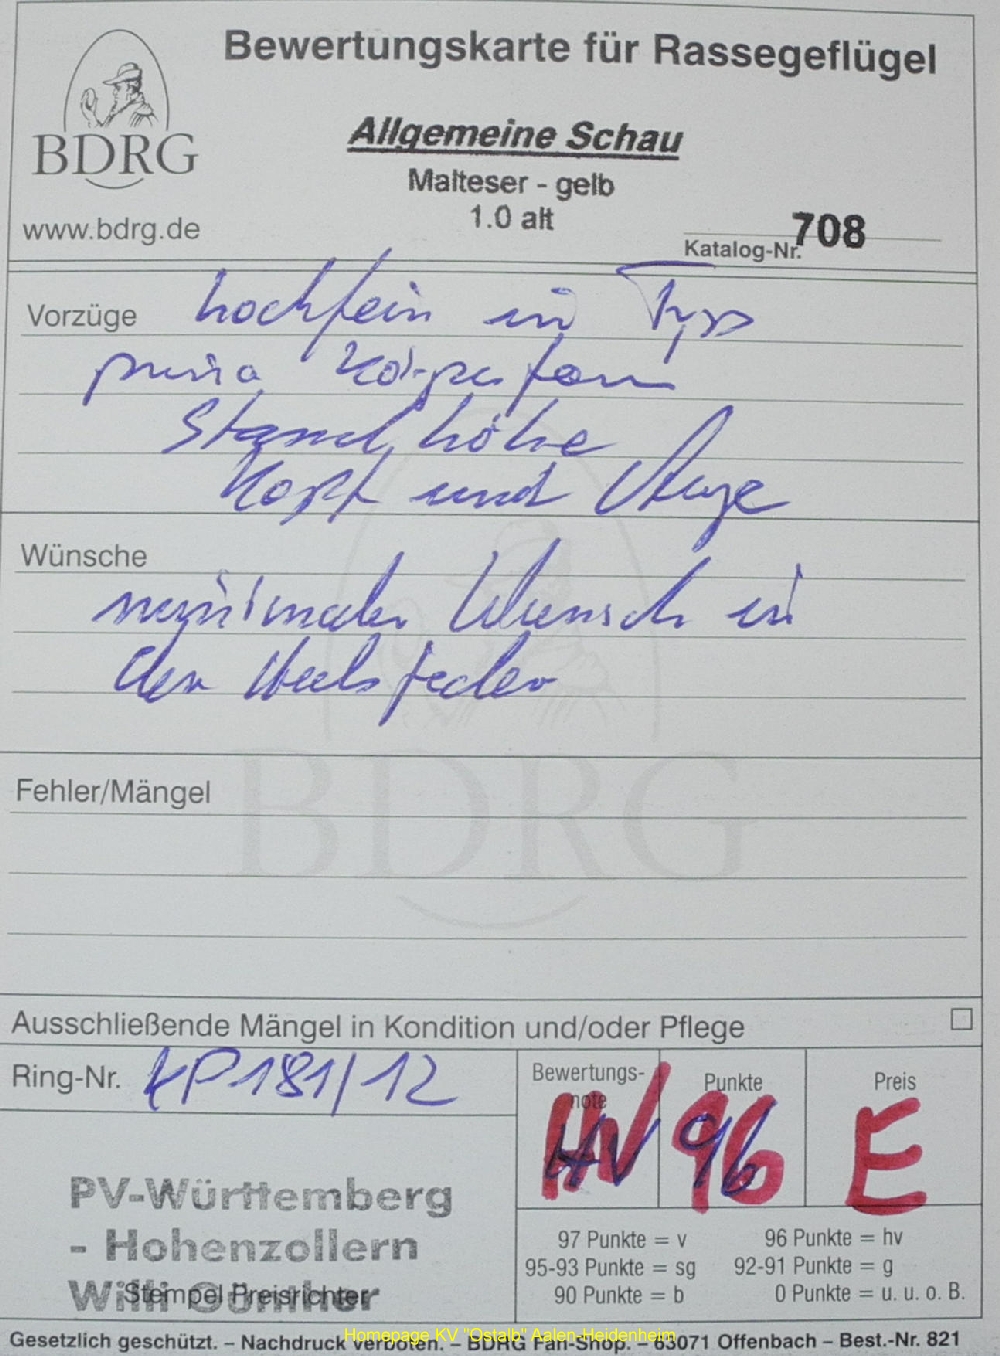 Bewertungskarte für Rassegeflügel
BDRG
www.bdrg.de
Allgemeine Schau
Malteser - gelb
1.0 alt
Katalog-Nr. 708
Vorzüge hochfein in Typ
prima Körperform
Stand, höhe
Kopf und Auge
Wünsche
minimaler Wunsch in
der Halsfeder
BDRG
Fehler/Mängel
Ausschließende Mängel in Kondition und/oder Pflege
Ring-Nr. 181/12
Bewertungs-note HV
Punkte 96
Preis E
PV-Württemberg
- Hohenzollern
Willi Günther
Stempel Preisrichter
97 Punkte = v 96 Punkte = hv
95-93 Punkte = sg 92-91 Punkte = g
90 Punkte = b 0 Punkte = u. u. o. B.
Gesetzlich geschützt. – Nachdruck verboten. – BDRG Fan-Shop. – 63071 Offenbach – Best.-Nr. 821
Homepage KV "Ostalb" Aalen-Heidenheim